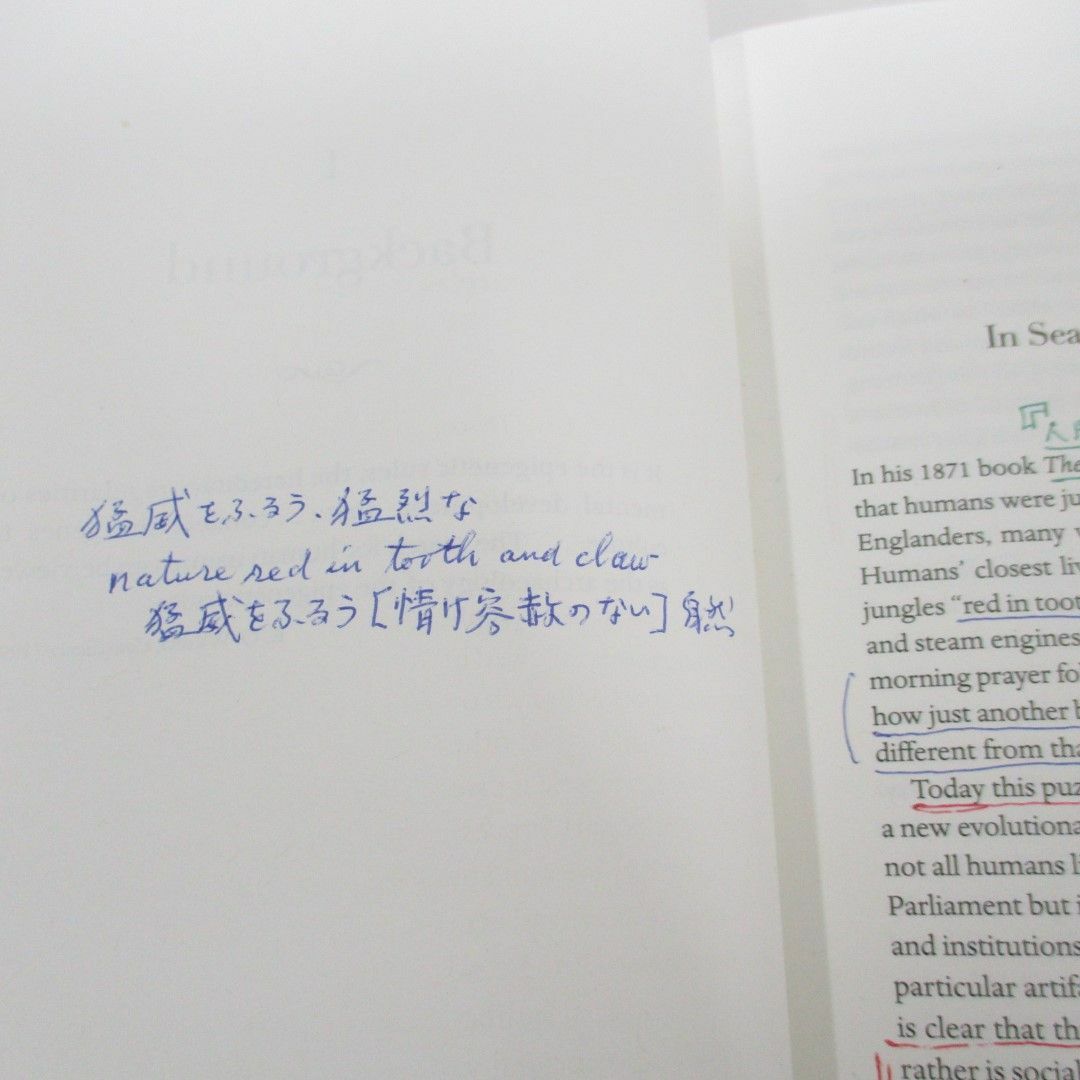 猛威をふるう、猛烈な
nature red in tooth and claw
猛威をふるう[情け容赦のない]自然
In Sea
In his 1871 book The
that humans were ju
Englanders, many
Humans' closest liv
jungles “red in toot
and steam engines
morning prayer fo
how just another b
different from tha
Today this puz
a new evolutiona
not all humans l
Parliament but i
and institutions
particular artifa
is clear that th
rather is social